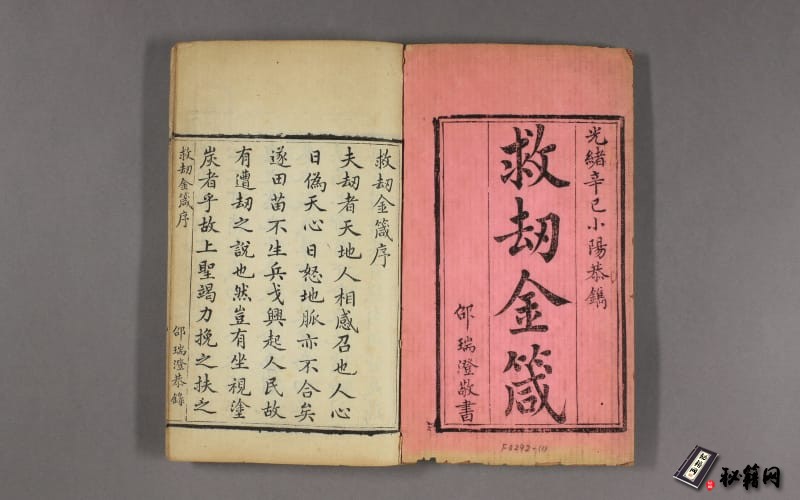 光緒辛巳小陽恭鐫
救劫金箴
邵瑞澄敬書
F0292-(1)
救劫金箴序
夫劫者天地人相感召也人心
日僞天心日怒地脈亦不合矣
遂田苗不生兵戈興起人民故
有遭劫之說也然豈有坐視塗
炭者乎故上聖竭力挽之扶之
救劫金箴序
邵瑞澄恭錄
秘籍网